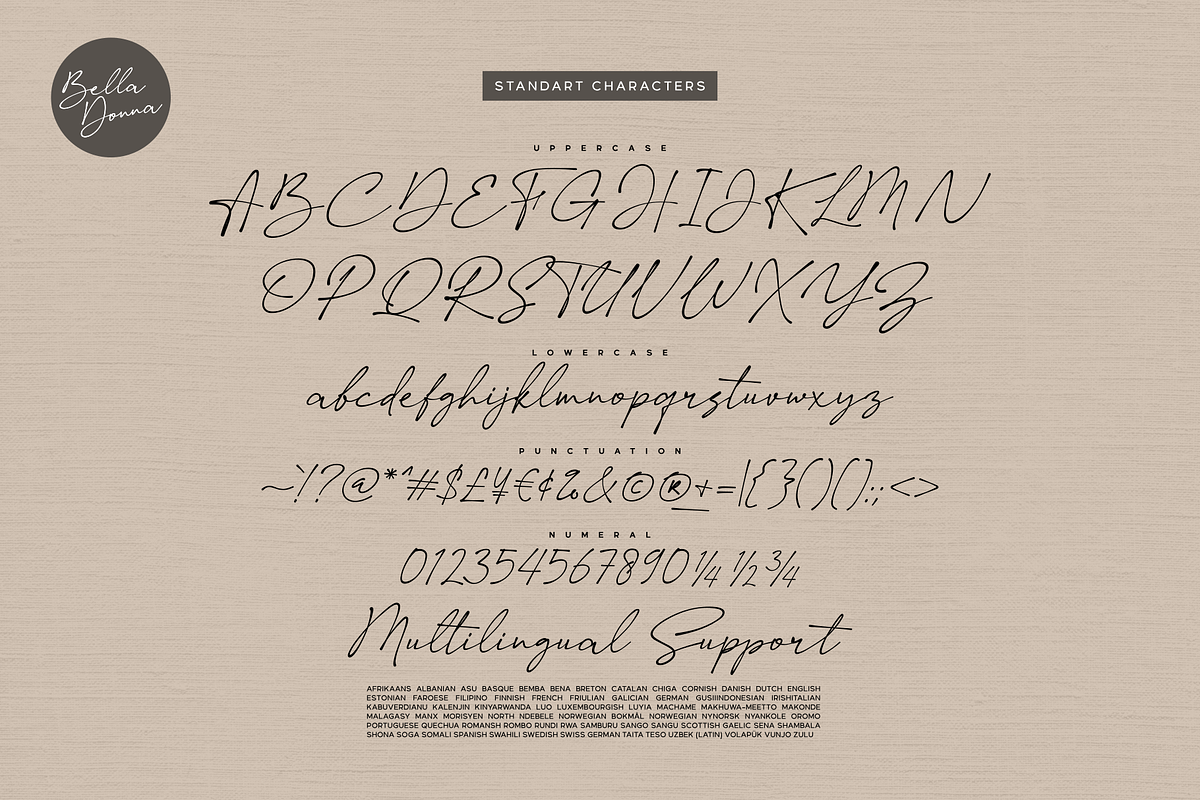 Bella
Donna
STANDART CHARACTERS
UPPERCASE
ABCDEFGHIJKLMN
OPQRSTUVWXYZ
LOWERCASE
abcdefghijklmnopqrstuvwxyz
PUNCTUATION
~`!?@*^#$£¥€¢%&©®±=|{}()():;<>
NUMERAL
012354567890¼½¾
Multilingual Support
AFRIKAANS ALBANIAN ASU BASQUE BEMBA BENA BRETON CATALAN CHIGA CORNISH DANISH DUTCH ENGLISH
ESTONIAN FAROESE FILIPINO FINNISH FRENCH FRIULIAN GALICIAN GERMAN GUSIIINDONESIAN IRISHITALIAN
KABUVERDIANU KALENJIN KINYARWANDA LUO LUXEMBOURGISH LUYIA MACHAME MAKHUWA-MEETTO MAKONDE
MALAGASY MANX MORISYEN NORTH NDEBELE NORWEGIAN BOKMÅL NORWEGIAN NYNORSK NYANKOLE OROMO
PORTUGUESE QUECHUA ROMANSH ROMBO RUNDI RWA SAMBURU SANGO SANGU SCOTTISH GAELIC SENA SHAMBALA
SHONA SOGA SOMALI SPANISH SWAHILI SWEDISH SWISS GERMAN TAITA TESO UZBEK (LATIN) VOLAPÜK VUNJO ZULU